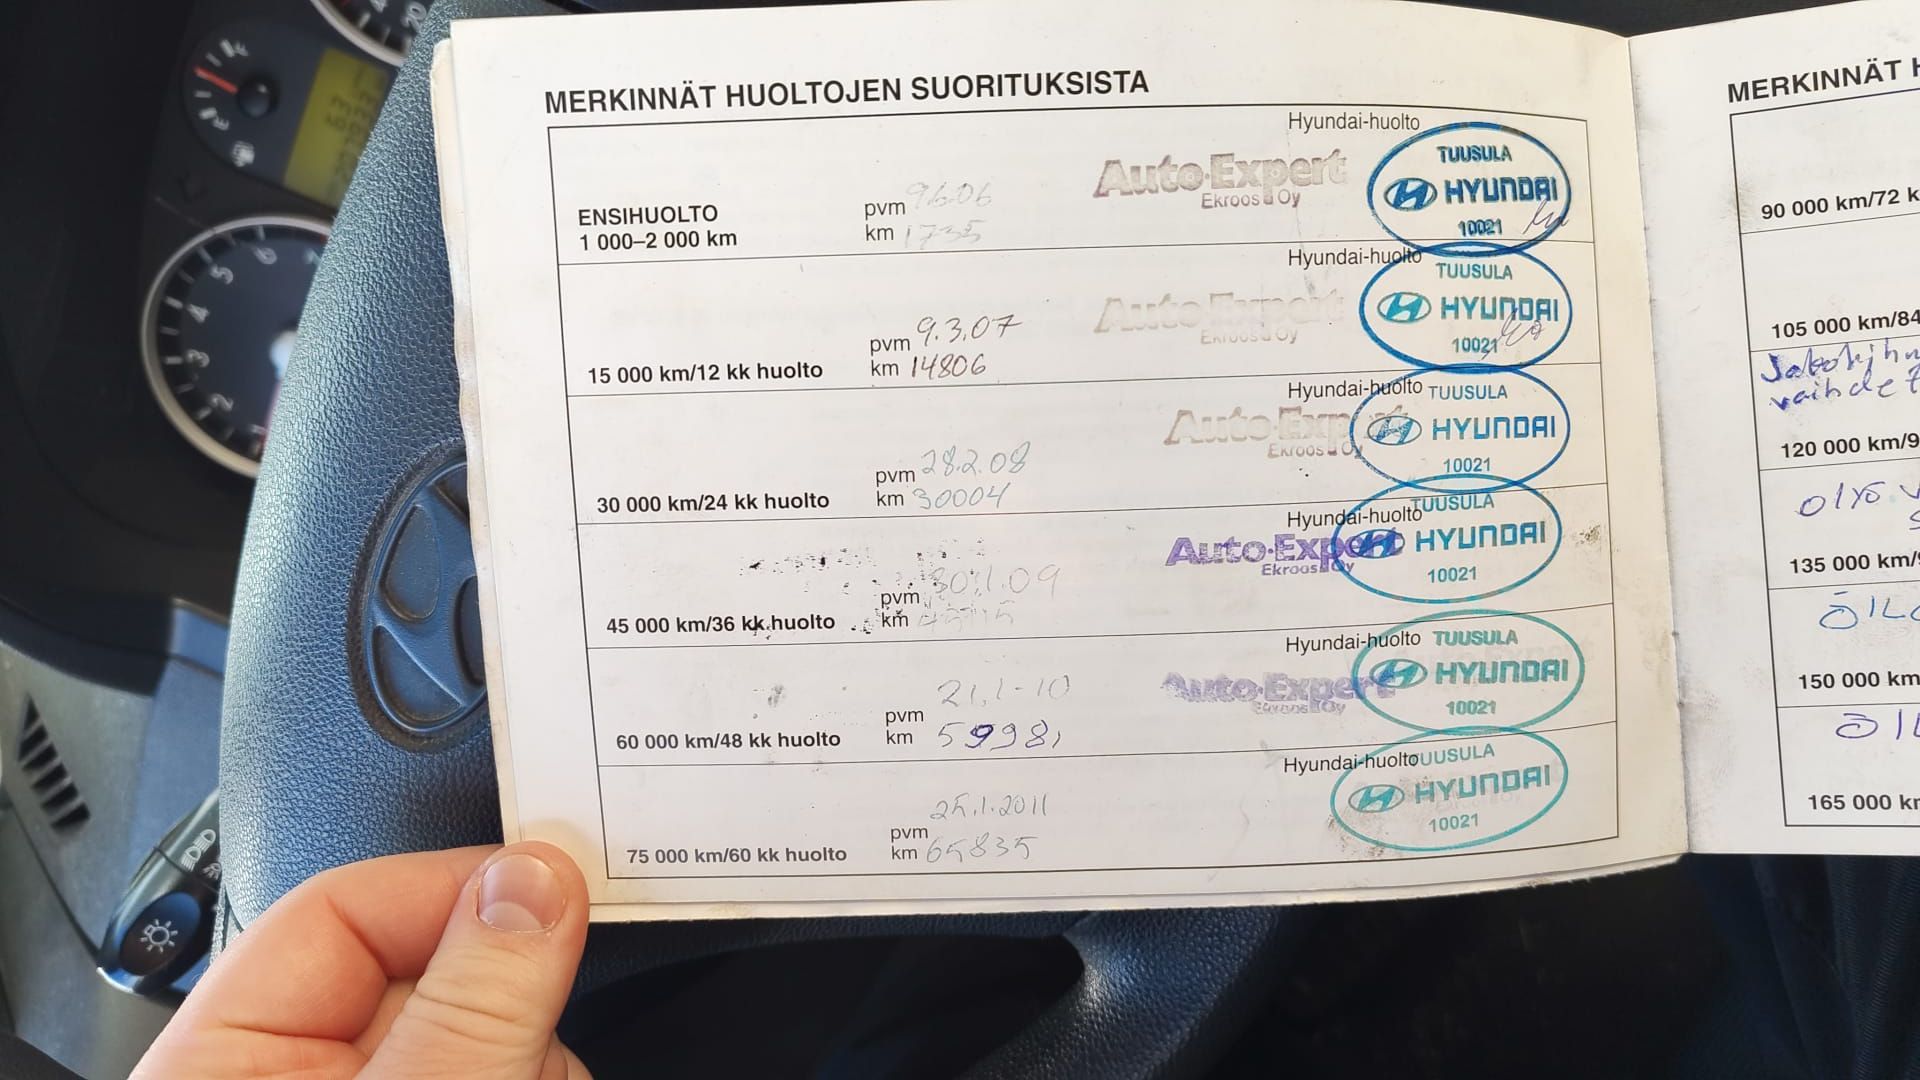 MERKINNÄT HUOLTOJEN SUORITUKSISTA
Hyundai-huolto
ENSIHUOLTO
1 000–2 000 km
pvm 9.6.06
km 1735
Auto·Expert
Ekroos Oy
TUUSULA
HYUNDAI
10021
Hyundai-huolto
15 000 km/12 kk huolto
pvm 9.3.07
km 14806
Auto·Expert
Ekroos Oy
TUUSULA
HYUNDAI
10021
Hyundai-huolto
30 000 km/24 kk huolto
pvm 28.2.08
km 30004
Auto·Expert
Ekroos Oy
TUUSULA
HYUNDAI
10021
Hyundai-huolto
45 000 km/36 kk huolto
pvm 30.1.09
km
Auto·Expert
Ekroos Oy
TUUSULA
HYUNDAI
10021
Hyundai-huolto
60 000 km/48 kk huolto
pvm 21.1-10
km 59981
Auto·Expert
Ekroos Oy
TUUSULA
HYUNDAI
10021
Hyundai-huolto
75 000 km/60 kk huolto
pvm 25.1.2011
km 65835
TUUSULA
HYUNDAI
10021
MERKINNÄT
90 000 km/72
105 000 km/84
vaihde
120 000 km/9
135 000 km/
150 000 km
165 000